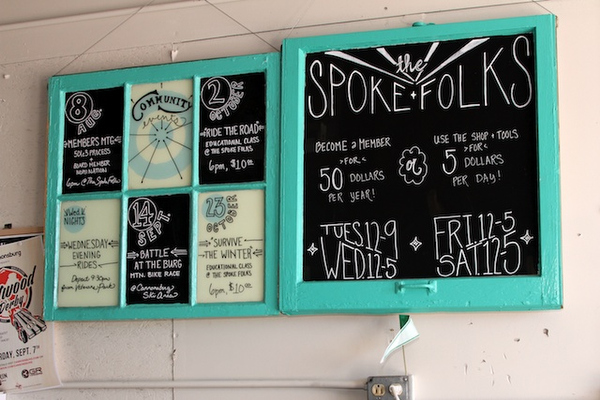 8
AUG.
MEMBERS MTG
501c3 PROCESS
+
BOARD MEMBER
NOMINATION
6pm @ The Spoke Folks
COMMUNITY
events
2
OCTOBER
RIDE THE ROAD
EDUCATIONAL CLASS
@ THE SPOKE FOLKS
6pm, $10.00
Week
NIGHTS
WEDNESDAY
EVENING
RIDES
Depart
from Veterans Park
14
SEPT.
BATTLE
AT THE BURG
MTN. BIKE RACE
@ Cannonsburg
Ski Area
23
OCTOBER
SURVIVE
THE WINTER
EDUCATIONAL CLASS
@ THE SPOKE FOLKS
6pm, $10.00
the
SPOKE FOLKS
BECOME A MEMBER
>FOR<
50 DOLLARS
PER YEAR!
or
USE THE SHOP + TOOLS
>FOR<
5 DOLLARS
PER DAY!
TUES. 12-9
WED. 12-5
FRI. 12-5
SAT. 12-5
nnonsburg
wood
erby
URDAY, SEPT. 7TH